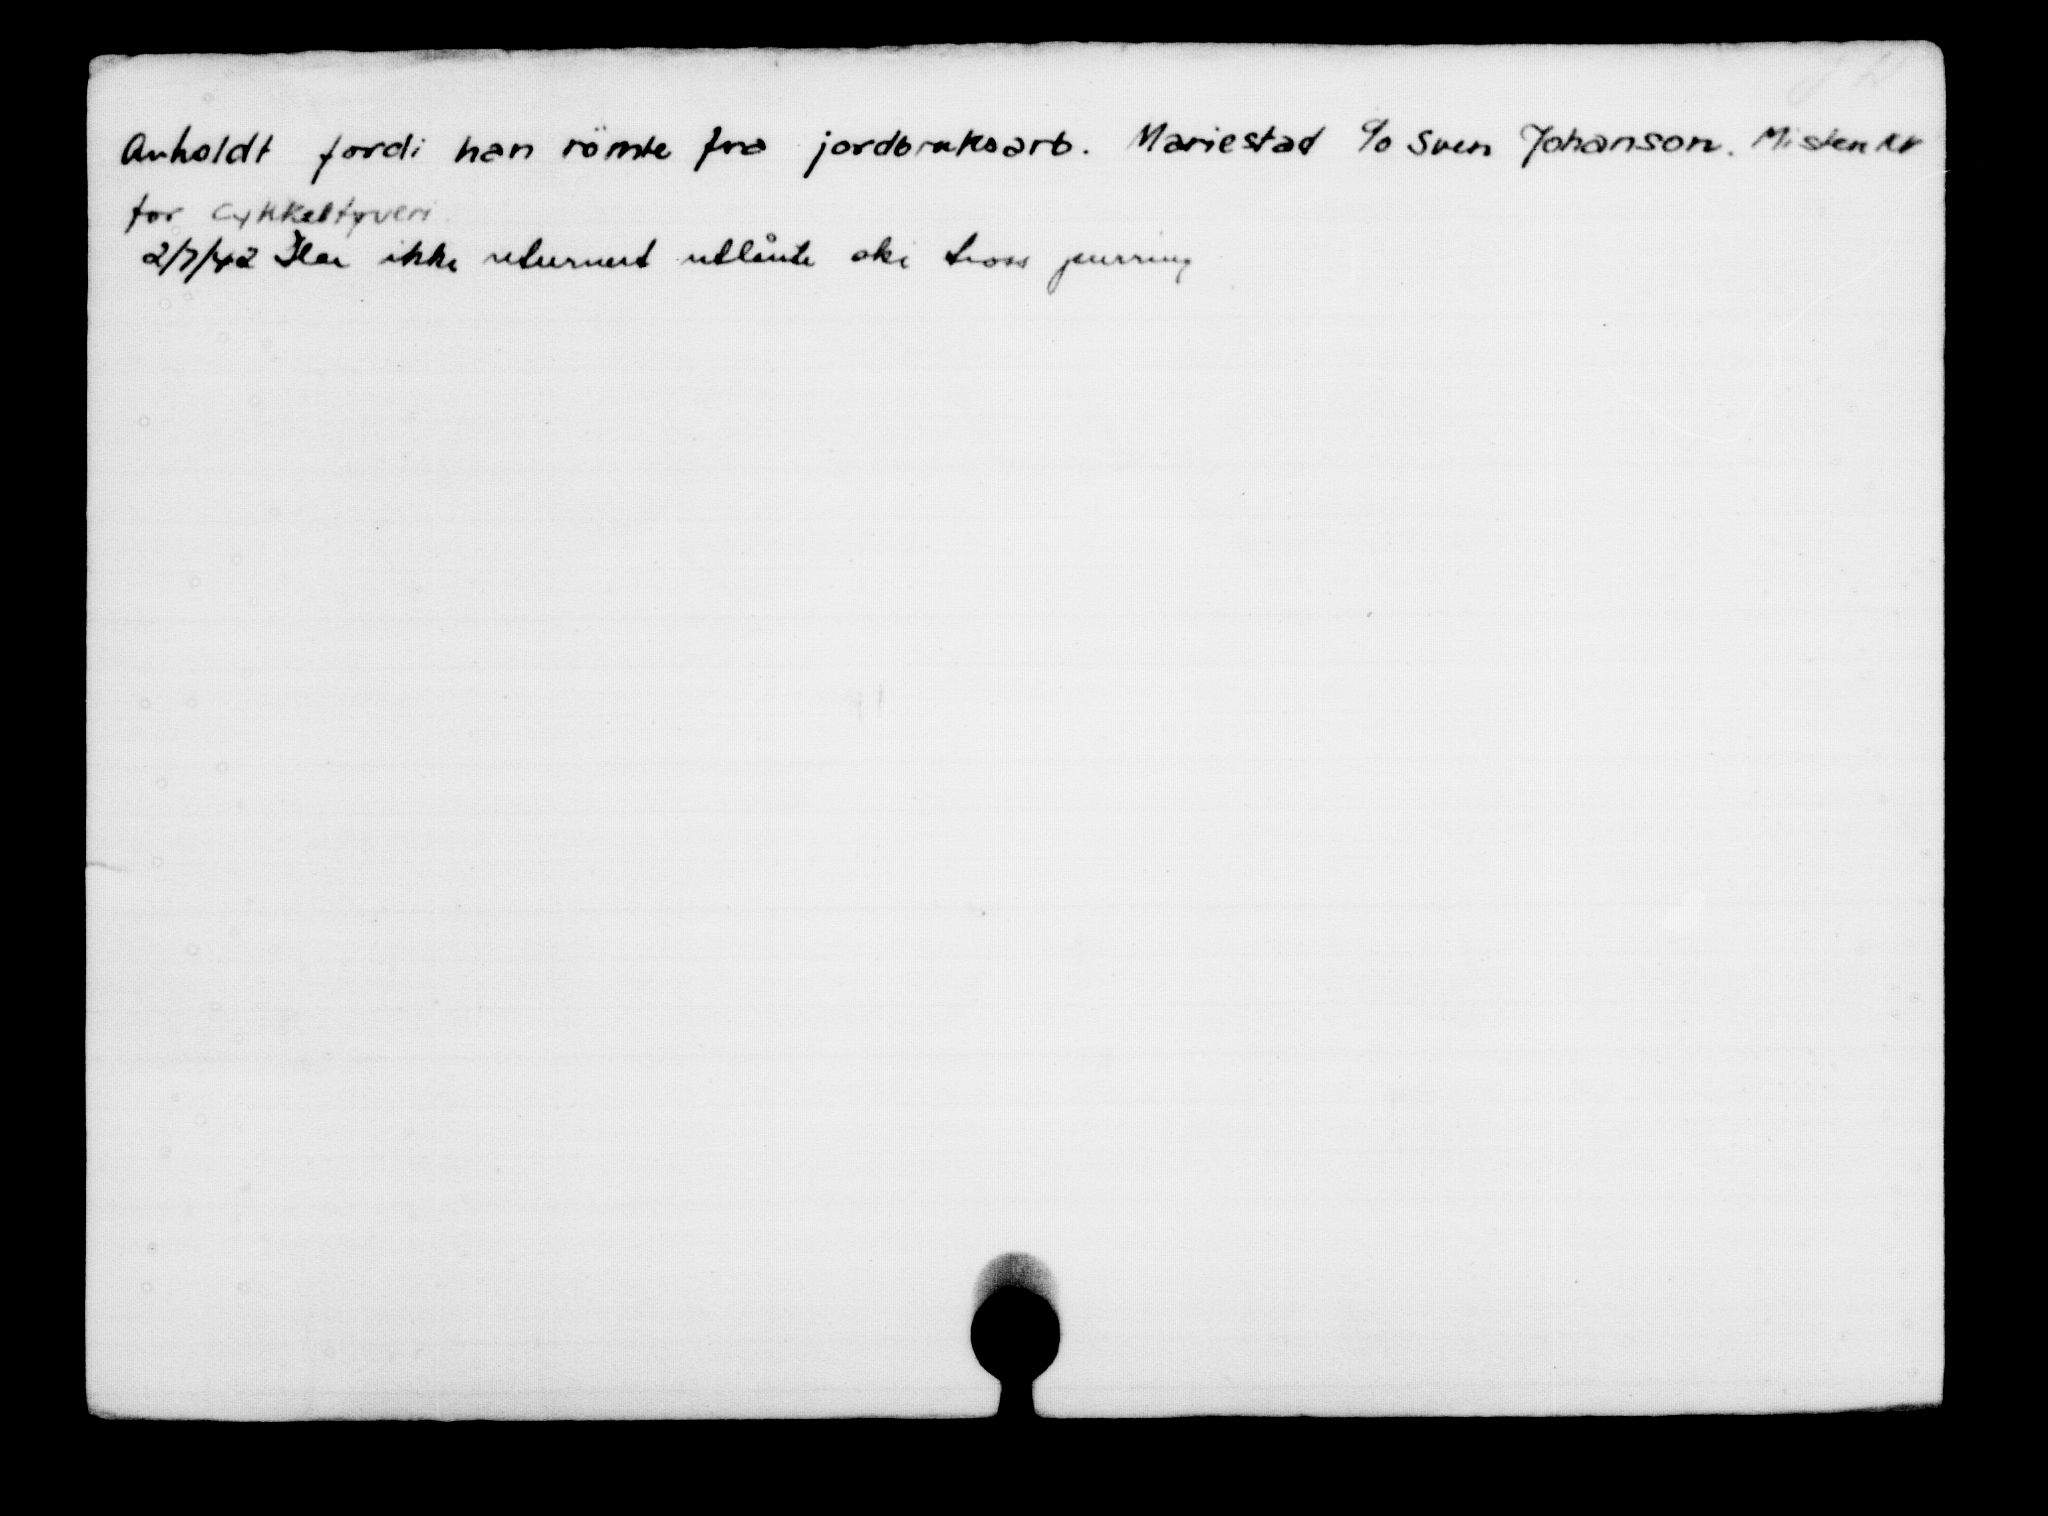 Anholdt fordi han römte fra jordbruksarb. Mariestad c/o Sven Johanson. Mistenkt
for cykkeltyveri.
2/7/42 Har ikke returnert utlånte ski tross purring